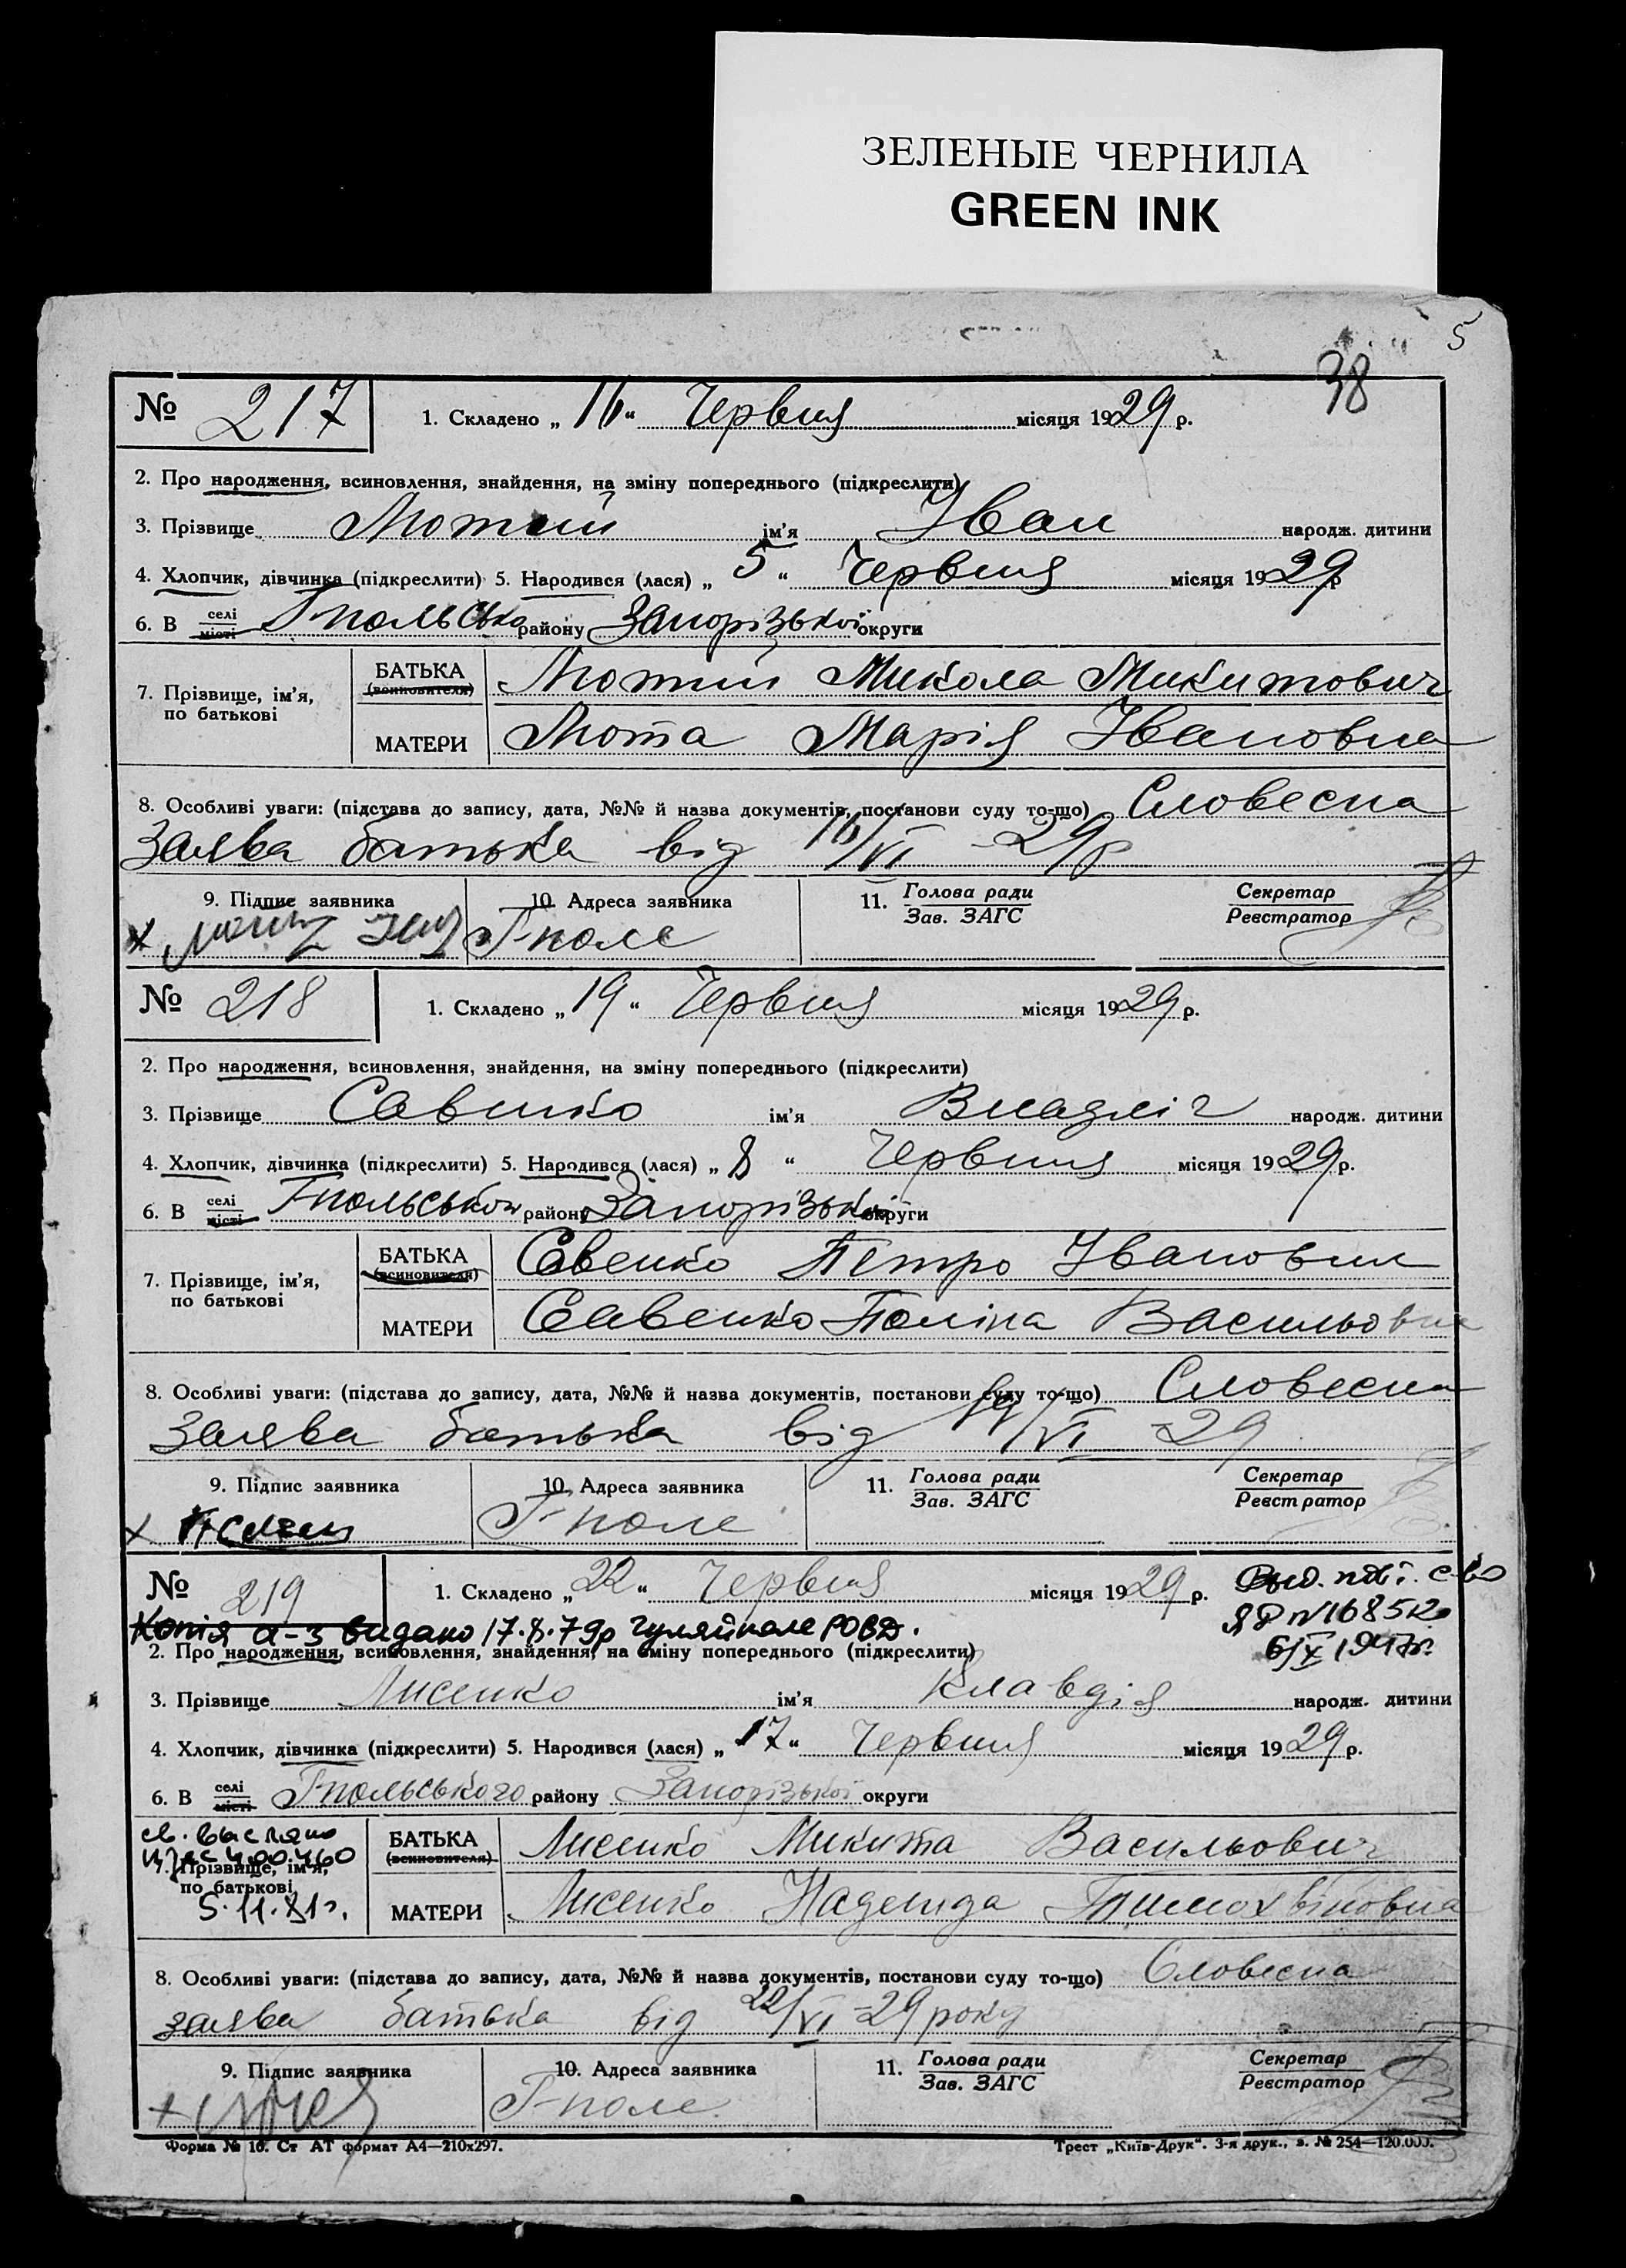 ЗЕЛЕНЫЕ ЧЕРНИЛА
GREEN INK
5
38
№ 217 1. Складено „ 16 “ Червня місяця 1929 р.
2. Про народження, всиновлення, знайдення, на зміну попереднього (підкреслити)
3. Прізвище Лютий ім’я Іван народж. дитини
4. Хлопчик, дівчинка (підкреслити) 5. Народився (лася) „ 5 “ Червня місяця 1929 р
6. В селі місті Гпольсько району Запорізької округи
7. Прізвище, ім’я, по батькові
БАТЬКА (всиновителя) Лютий Микола Микитович
МАТЕРИ Люта Марія Івановна
8. Особливі уваги: (підстава до запису, дата, №№ й назва документів, постанови суду то-що) Словесна
Заява батька від 16/VI -29р
9. Підпис заявника 10. Адреса заявника 11. Голова ради Зав. ЗАГС Секретар Реєстратор
х Г-поле
№ 218 1. Складено „ 19 “ Червня місяця 1929 р.
2. Про народження, всиновлення, знайдення, на зміну попереднього (підкреслити)
3. Прізвище Савенко ім’я народж. дитини
4. Хлопчик, дівчинка (підкреслити) 5. Народився (лася) „ 8 “ Червня місяця 1929 р.
6. В селі місті Гпольськом району Запорізької округи
7. Прізвище, ім’я, по батькові
БАТЬКА (всиновителя) Савенко Петро Іванович
МАТЕРИ Савенко Поліна Васильовна
8. Особливі уваги: (підстава до запису, дата, №№ й назва документів, постанови суду то-що) Словесна
Заява батька від 19/VI -29
9. Підпис заявника 10. Адреса заявника 11. Голова ради Зав. ЗАГС Секретар Реєстратор
х Г-поле
№ 219 1. Складено „ 22 “ Червня місяця 1929 р. Выд. с-во
Копія а-з видано 17.8.79р Гуляйполе РОВД. ЯР № 16852
2. Про народження, всиновлення, знайдення, на зміну попереднього (підкреслити) 6/X 1947г.
3. Прізвище Лисенко ім’я Клавдія народж. дитини
4. Хлопчик, дівчинка (підкреслити) 5. Народився (лася) „ 17 “ Червня місяця 1929 р.
6. В селі місті Гпольського району Запорізької округи
св. выслано
400460
7. Прізвище, ім’я, по батькові
5.11.81г.
БАТЬКА (всиновителя) Лисенко Микита Васильович
МАТЕРИ Лисенко Надежда
8. Особливі уваги: (підстава до запису, дата, №№ й назва документів, постанови суду то-що) Словесна
заява батька від 22/VI -29 року
9. Підпис заявника 10. Адреса заявника 11. Голова ради Зав. ЗАГС Секретар Реєстратор
+ Г-поле
Форма № 16. Ст АТ формат А4—210х297. Трест „Київ-Друк“. 3-я друк., з. № 254—120.000.